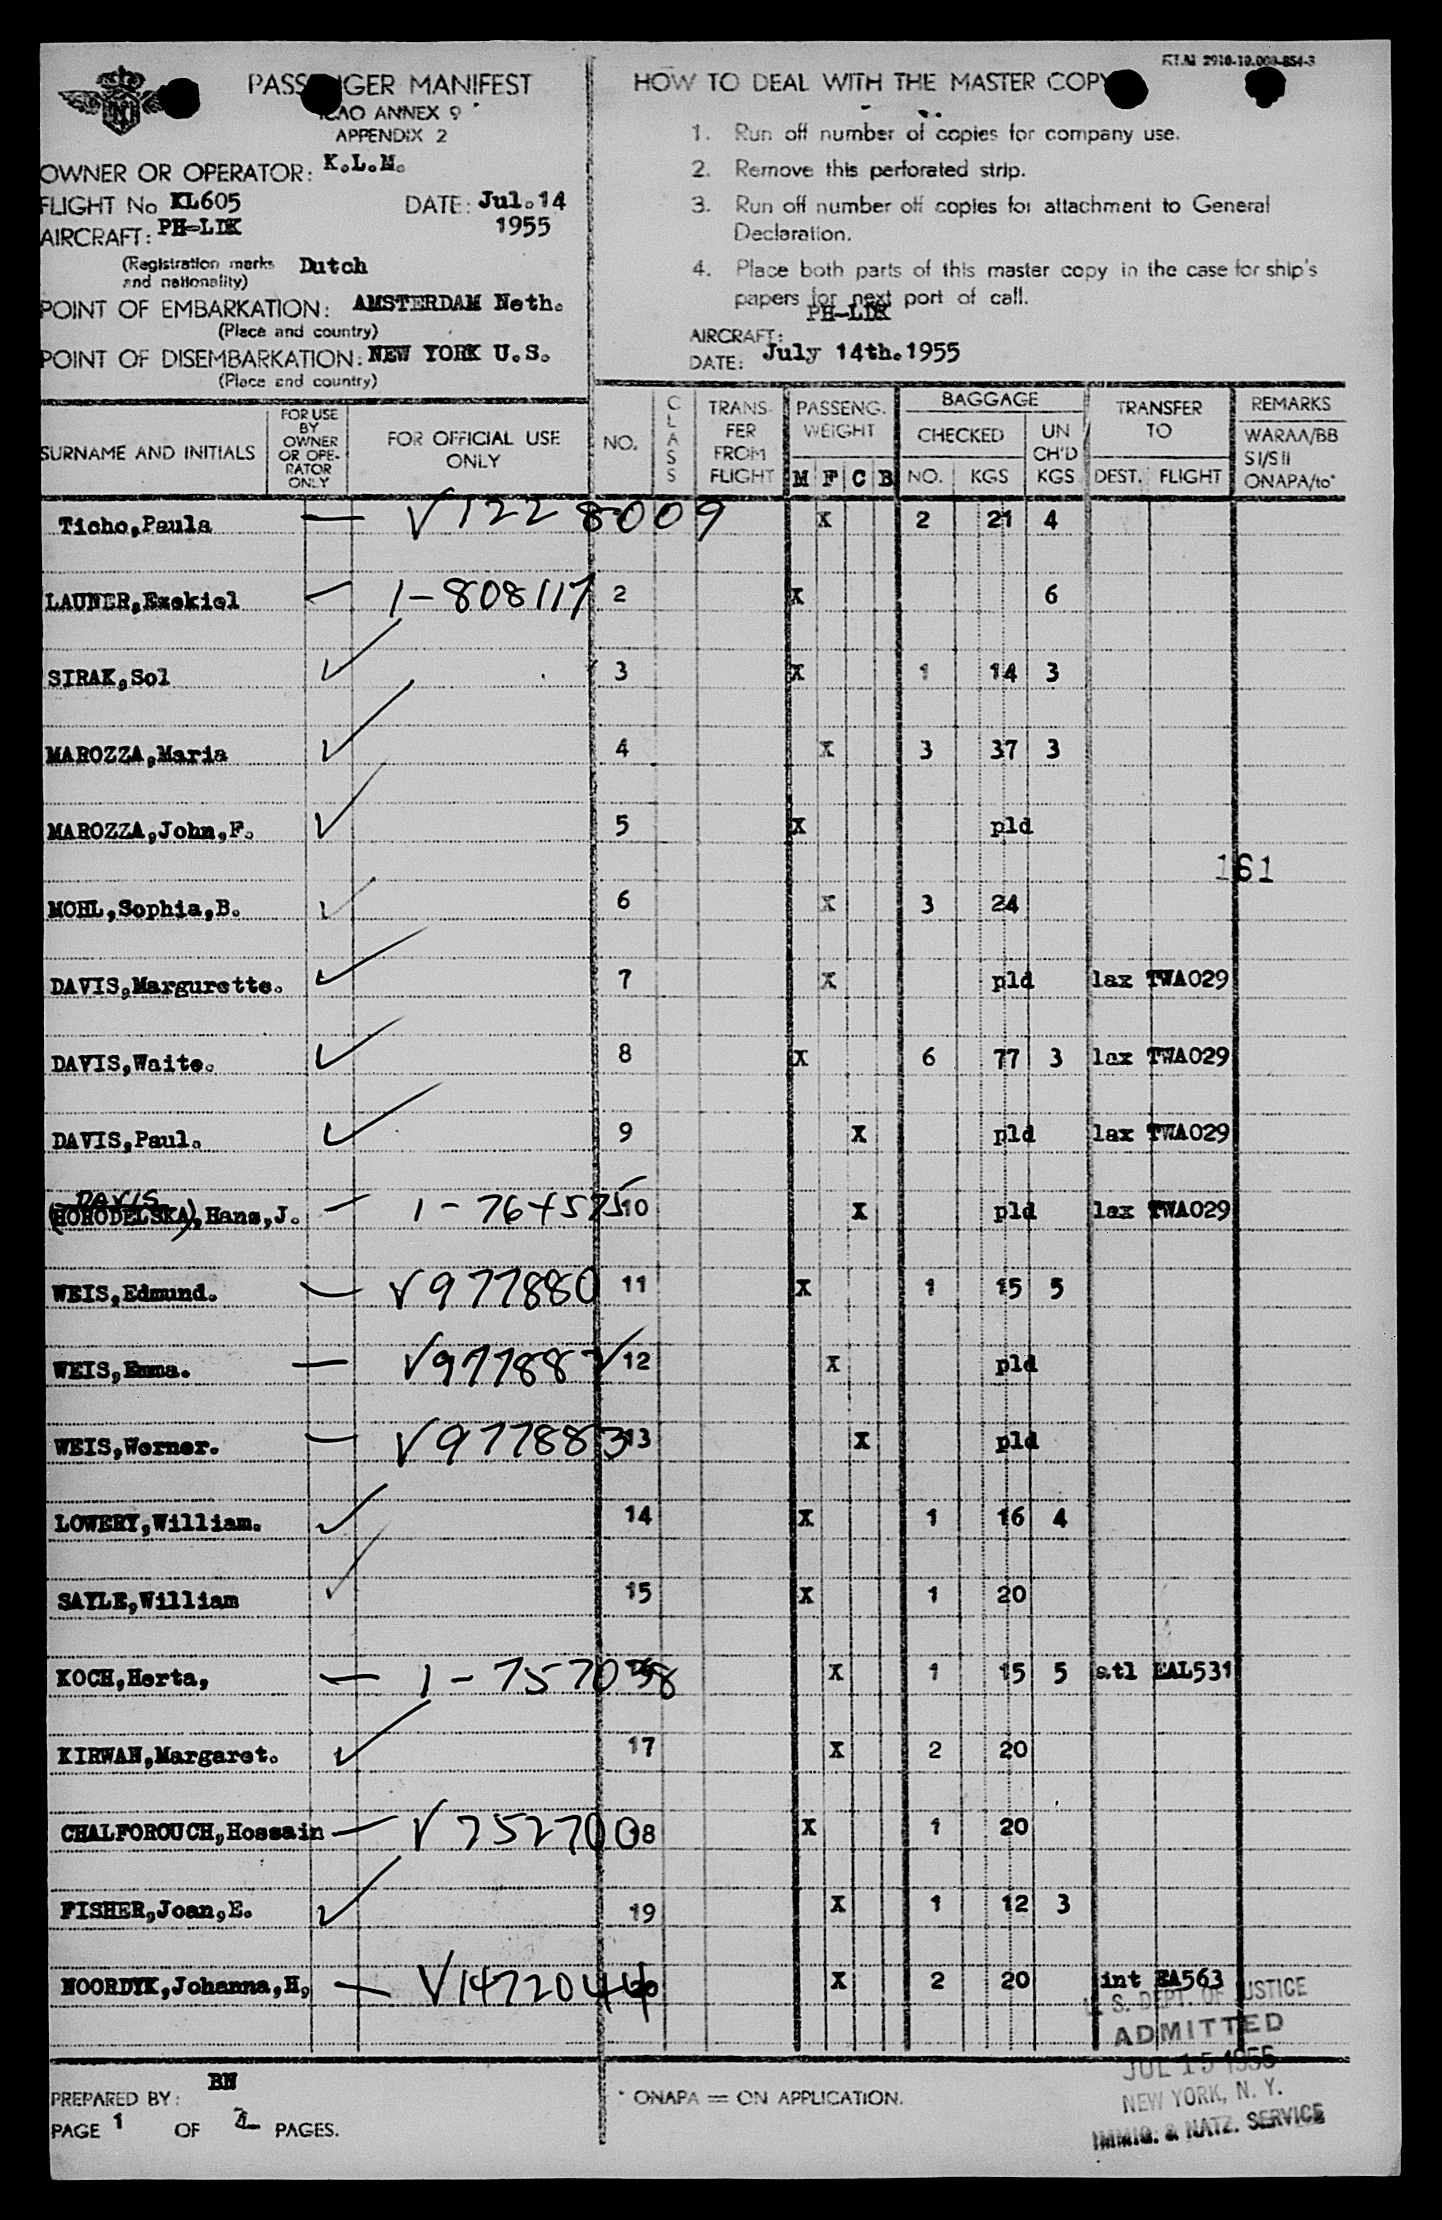 KLM 2910-10.000-854-3
PASSENGER MANIFEST
ICAO ANNEX 9
APPENDIX 2
OWNER OR OPERATOR: K.L.M.
FLIGHT No KL605 DATE: Jul.14
1955
AIRCRAFT: PH-LDK
(Registration marks and nationality) Dutch
POINT OF EMBARKATION: AMSTERDAM Neth.
(Place and country)
POINT OF DISEMBARKATION: NEW YORK U.S.
(Place and country)
HOW TO DEAL WITH THE MASTER COPY
1. Run off number of copies for company use.
2. Remove this perforated strip.
3. Run off number off copies for attachment to General
Declaration.
4. Place both parts of this master copy in the case for ship's
papers for next port of call.
AIRCRAFT: PH-LDK
DATE: July 14th.1955
SURNAME AND INITIALS
FOR USE BY OWNER OR OPE-RATOR ONLY
FOR OFFICIAL USE ONLY
NO.
CLASS
TRANS-FER FROM FLIGHT
PASSENG. WEIGHT
M F C B
BAGGAGE
CHECKED
NO. KGS
UN CH'D KGS
TRANSFER TO
DEST. FLIGHT
REMARKS
WARAA/BB
SI/SII
ONAPA/to*
Ticho,Paula — V1228009 X 2 21 4
LAUNER,Ezekiel — 1-808117 2 X 6
SIRAK,Sol ✓ 3 X 1 14 3
MAROZZA,Maria ✓ 4 X 3 37 3
MAROZZA,John,F. ✓ 5 X pld
161
MOHL,Sophia,B. ✓ 6 X 3 24
DAVIS,Margurette. ✓ 7 X pld lax TWA029
DAVIS,Waite. ✓ 8 X 6 77 3 lax TWA029
DAVIS,Paul. ✓ 9 X pld lax TWA029
DAVIS
(HORODELSKA),Hans,J. — 10 X pld lax TWA029
WEIS,Edmund. — V977880 11 X 1 15 5
WEIS,Emma. — 12 X pld
WEIS,Werner. — V977883 13 X pld
LOWERY,William. ✓ 14 X 1 16 4
SAYLE,William ✓ 15 X 1 20
KOCH,Herta, — X 1 15 5 stl EAL531
KIRWAN,Margaret. ✓ 17 X 2 20
CHALFOROUCH,Hossain — 18 X 1 20
FISHER,Joan,E. ✓ 19 X 1 12 3
NOORDYK,Johanna,H. — V1472044 20 X 2 20 int EA563
U. S. DEPT. OF JUSTICE
ADMITTED
JUL 15 1955
NEW YORK, N. Y.
IMMIG. & NATZ. SERVICE
PREPARED BY: BN
PAGE 1 OF PAGES.
* ONAPA = ON APPLICATION.